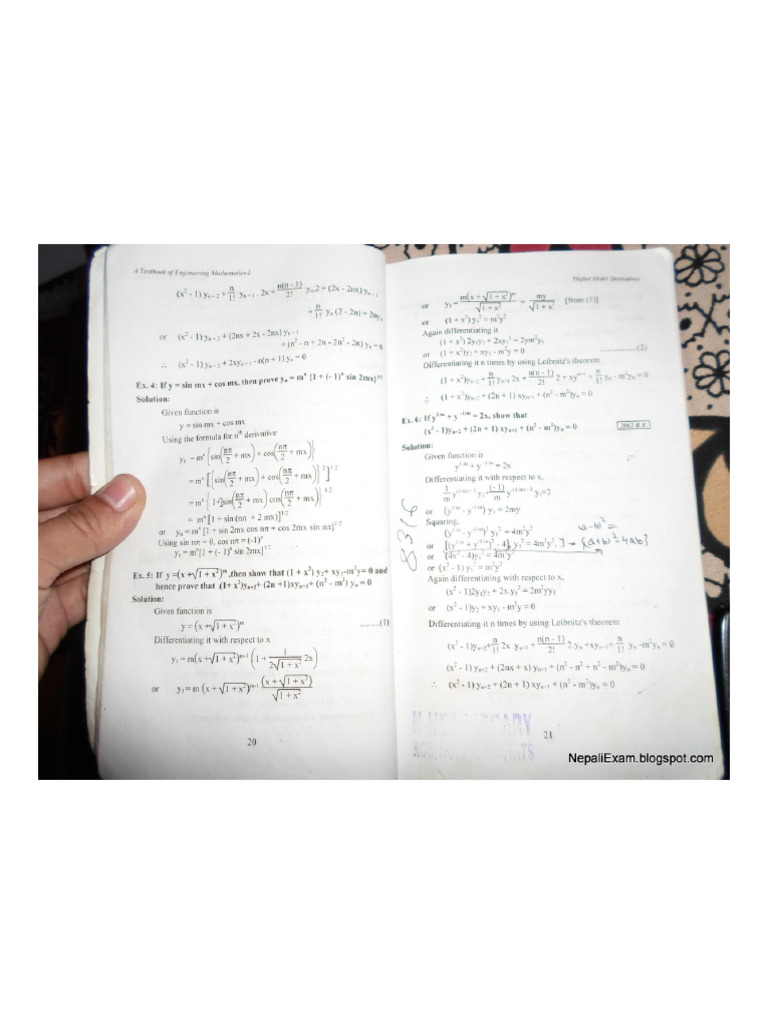 A Textbook of Engineering Mathematics-I
(x² - 1) yₙ₊₂ + n/1! yₙ₊₁ . 2x + n(n - 1)/2! yₙ.2 + (2x - 2nx) yₙ₊₁
+ n/1! yₙ (2 - 2n) = 2nyₙ
or (x² - 1) yₙ₊₂ + (2nx + 2x - 2nx) yₙ₊₁
+ (n² - n + 2n - 2n² - 2n) yₙ = 0
∴ (x² - 1) yₙ₊₂ + 2xyₙ₊₁ - n(n + 1) yₙ = 0
Ex. 4: If y = sin mx + cos mx, then prove yₙ = mⁿ [1 + (- 1)ⁿ sin 2mx]^1/2
Solution:
Given function is
y = sin mx + cos mx
Using the formula for nth derivative
yₙ = mⁿ {sin(nπ/2 + mx) + cos(nπ/2 + mx)}
= mⁿ [{sin(nπ/2 + mx) + cos(nπ/2 + mx)}²]^1/2
= mⁿ {1+2sin(nπ/2 + mx) cos(nπ/2 + mx)}^1/2
= mⁿ [1 + sin (nπ + 2 mx)]^1/2
or yₙ = mⁿ [1 + sin 2mx cos nπ + cos 2mx sin nπ]^1/2
Using sin nπ = 0, cos nπ = (-1)ⁿ
yₙ = mⁿ [1 + (- 1)ⁿ sin 2mx]^1/2
Ex. 5: If y =(x +√1 + x²)ᵐ ,then show that (1 + x²) y₂+ xy₁-m²y= 0 and
hence prove that (1+ x²)yₙ₊₂+ (2n +1)xyₙ₊₁+ (n² - m²) yₙ = 0
Solution:
Given function is
y = (x +√1 + x²)ᵐ ..........(1)
Differentiating it with respect to x
y₁ = m(x + √1 + x²)ᵐ⁻¹ (1 + 1/2√1 + x² 2x)
or y₁ = m (x + √1 + x²)ᵐ⁻¹ (x + √1 + x²)/√1 + x²
20
Higher Order Derivatives
or y₁ = m(x + √1 + x²)ᵐ/√1 + x² = my/√1 + x [from (1)]
or (1 + x²) y₁² = m²y²
Again differentiating it
(1 + x²) 2y₁y₂ + 2xy₁² = 2ym²y₁
or (1 + x²)y₂ + xy₁ - m²y = 0 ..........(2)
Differentiating it n times by using Leibnitz's theorem
(1 + x²)yₙ₊₂ + n/1! yₙ₊₁ 2x + n(n - 1)/2! 2 + xyⁿ⁺¹ + n/1! yₙ - m²yₙ = 0
∴ (1 + x²)yₙ₊₂ + (2n + 1) xyₙ₊₁ + (n² - m²)yₙ = 0
Ex. 6: If y^1/m + y^-1/m = 2x, show that
(x² - 1)yₙ₊₂ + (2n + 1) xyₙ₊₁ + (n² - m²)yₙ = 0 2062 B.E.
Solution:
Given function is
y^1/m + y^-1/m = 2x
Differentiating it with respect to x,
1/m y^(1/m)-1 y₁+(-1)/m y^(-1/m)-1 y₁=2
or (y^1/m - y^-1/m) y₁ = 2my
Squaring,
(y^1/m - y^-1/m)² y₁² = 4m²y²
or [(y^1/m + y^-1/m)² - 4] y₁² = 4m²y². → {(a+b)² - 4ab}
or (4x² - 4)y₁² = 4m²y²
or (x² - 1) y₁² = m²y²
Again differentiating with respect to x,
(x² - 1)2y₁y₂ + 2x.y₁² = 2m²yy₁
or (x² - 1)y₂ + xy₁ - m²y = 0
Differentiating it n times by using Leibnitz's theorem
(x² - 1)yₙ₊₂+ n/1! 2x .yₙ₊₁ + n(n - 1)/2! 2.yₙ +xyₙ₊₁+ n/1! yₙ -m²yₙ = 0
(x² - 1) yₙ₊₂ + (2nx + x) yₙ₊₁ + (n² - n + n - m²)yₙ = 0
∴ (x² - 1) yₙ₊₂ + (2n + 1) xyₙ₊₁ + (n² - m²)yₙ = 0
21
8316
NepaliExam.blogspot.com